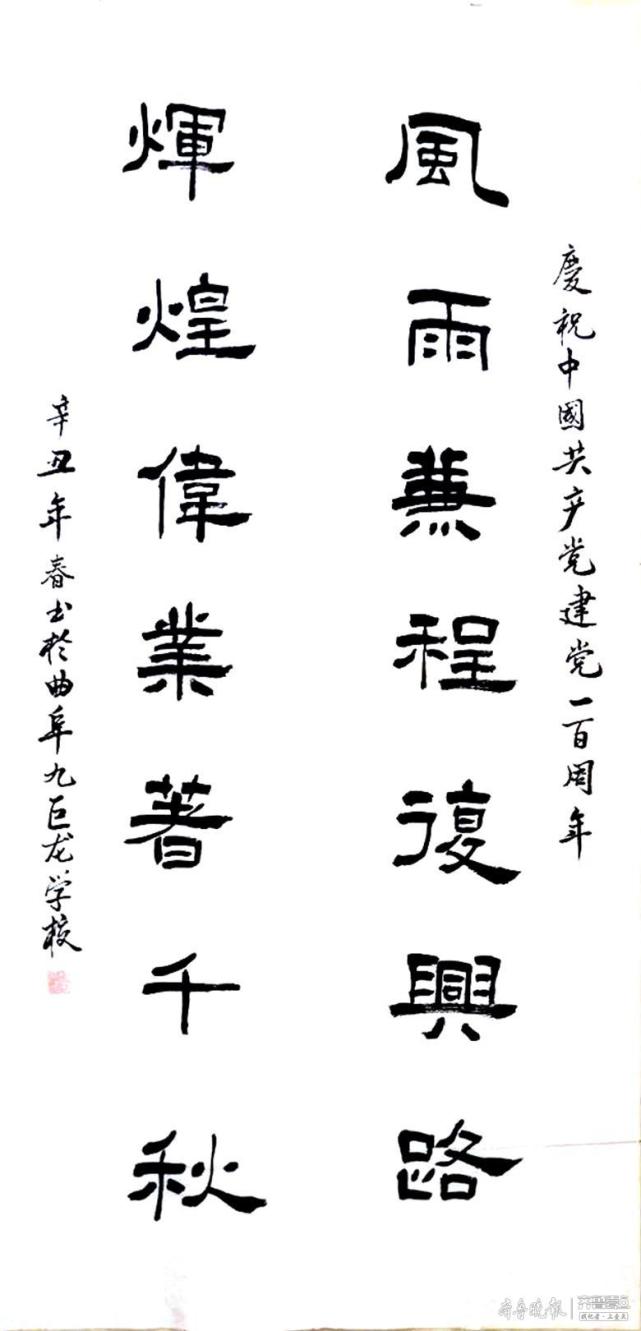 慶祝中國共产党建党一百周年
風雨兼程復興路
輝煌偉業著千秋
辛丑年春书於曲阜九巨龙学校
齐鲁晚报
齐鲁壹点